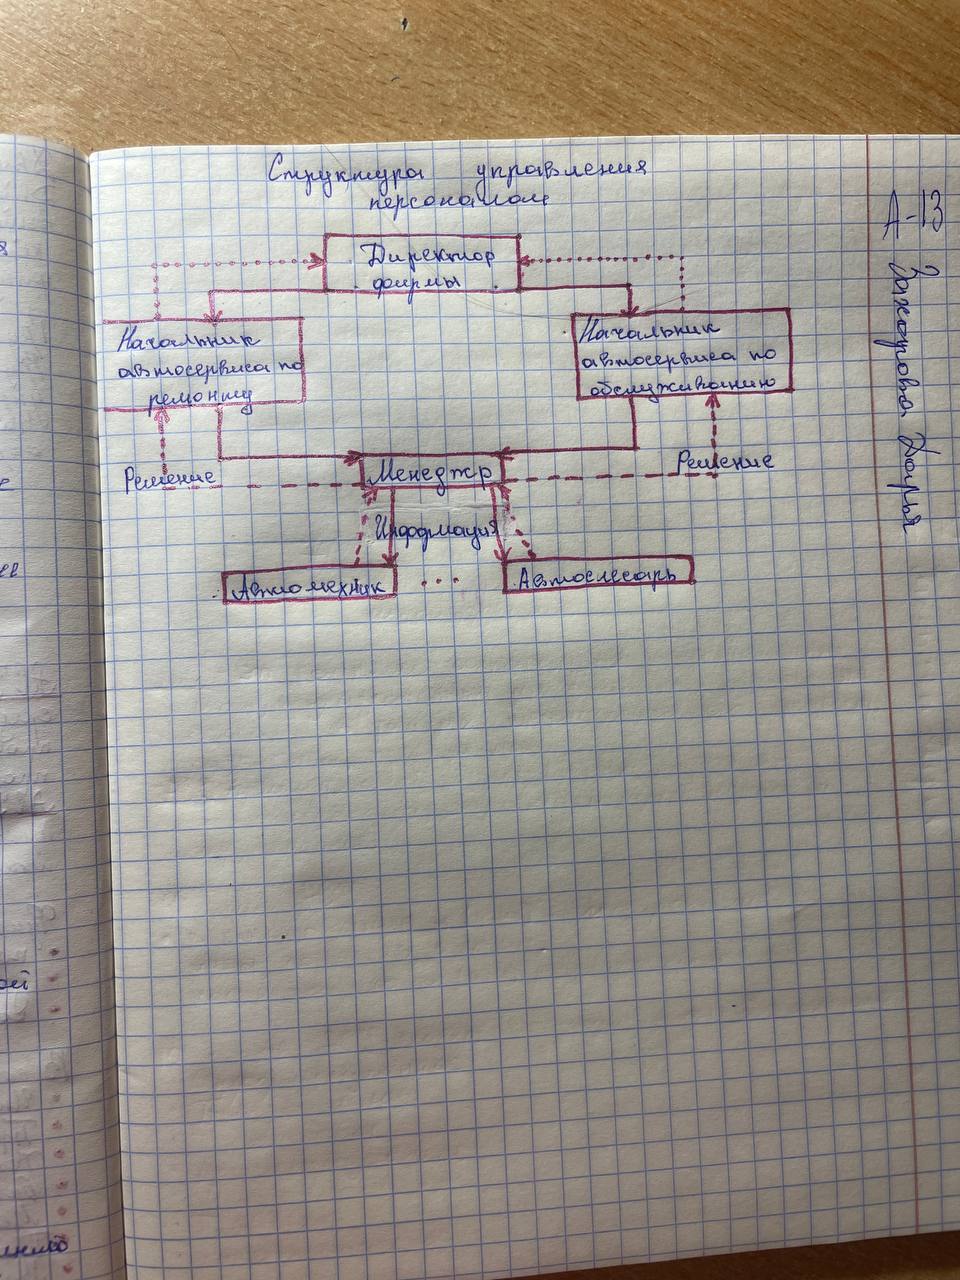 Структура управления
персоналом
Директор
фирмы
Начальник
автосервиса по
ремонту
Начальник
автосервиса по
обслуживанию
Решение
Менеджр
Решение
Информация
Автомехник
...
Автослесарь
А-13
Дарья
ой